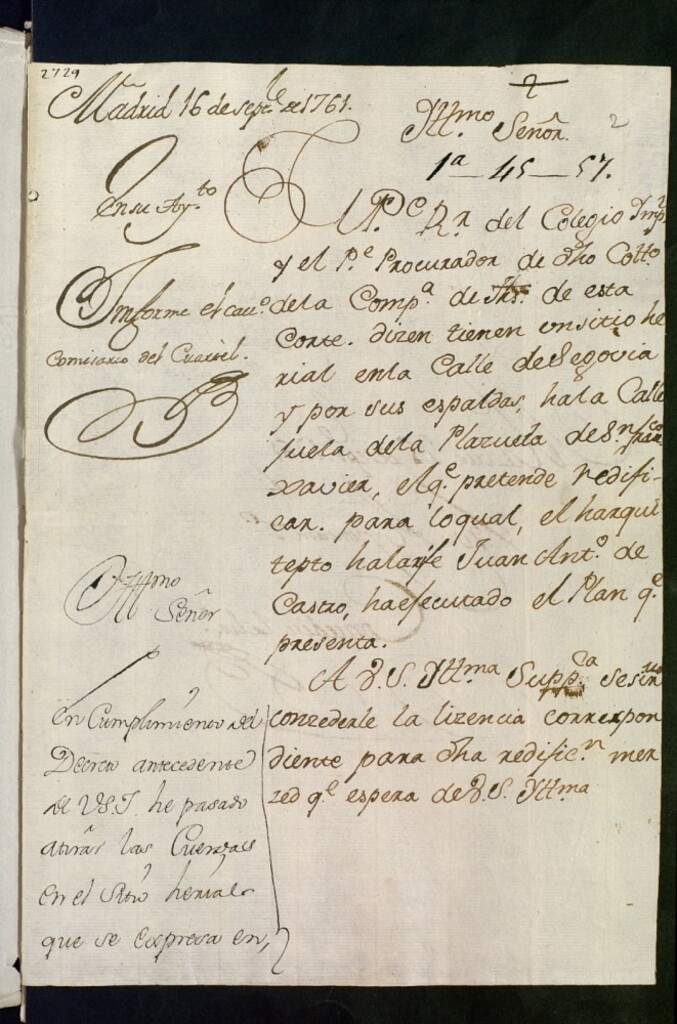 2729
Madrid 16 de sept.re de 1761.
En su Ay.to
Informe el cav.o
Comisario del Cuartel.
Yttmo
Señor
En Cumplimiento del
Decreto antecedente
de V.S.I. he pasado
atirar las Cuerdas
en el Sitio herial
que se expresa en,
2
Yttmo. Señor.
1a - 45 - 57.
El P.e R.r del Colegio Imp.l
y el P.e Procurador de dho Coll.o
de la Comp.a de Jhs. de esta
Corte. dizen tienen un sitio he
rial en la Calle de Segovia
y por sus espaldas, hala Calle
juela dela Plazuela de S.n Fran.co
Xavier, el q.e pretende redifi-
car. para lo qual, el harqui
tepto halarife Juan Ant.o de
Castro, ha ejecutado el Plan q.e
presenta.
A V.S. Yttma Supp.ca se sirva
conzederle la lizencia correspon
diente para dha redific.n mer
zed q.e espera de V.S. Yttma